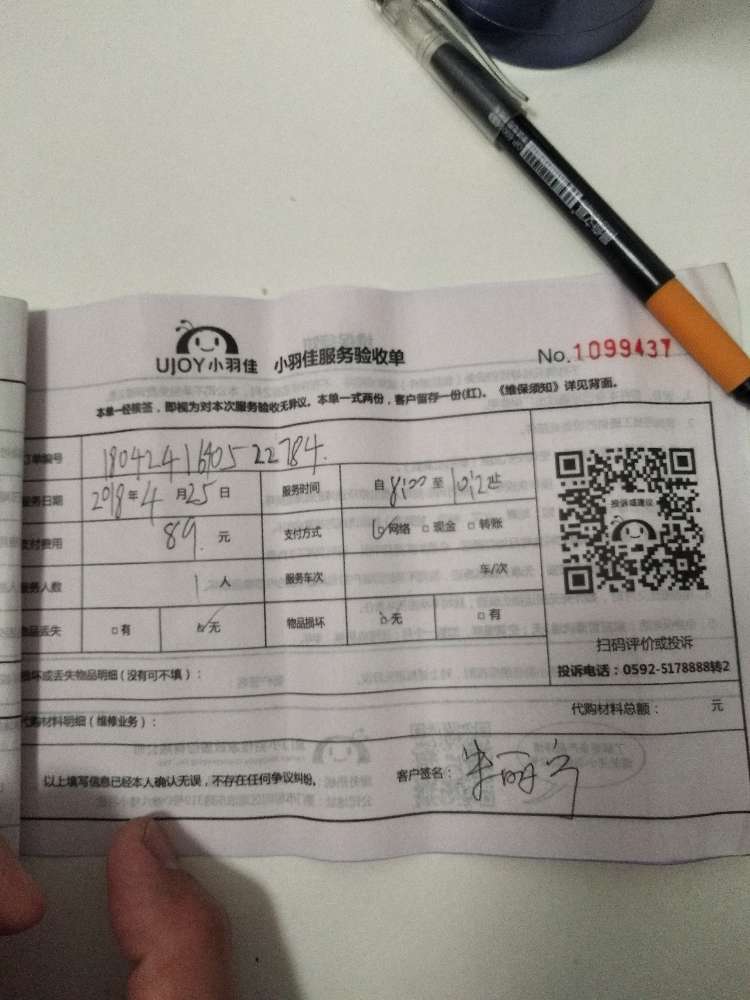 UJOY小羽佳 小羽佳服务验收单 No.1099437
本单一经核签，即视为对本次服务验收无异议。本单一式两份，客户留存一份(红)。《维保须知》详见背面。
订单编号 18042416405 22784
服务日期 2018年4月25日 服务时间 自 8:00 至 10:20 止
支付费用 89. 元 支付方式 ☑网络 □现金 □转账
服务人数 1 人 服务车次 车/次
物品丢失 □有 ☑无 物品损坏 ☑无 □有
投诉或建议
扫码评价或投诉
投诉电话：0592-5178888转2
损坏或丢失物品明细（没有可不填）：
代购材料明细（维修业务）： 代购材料总额： 元
以上填写信息已经本人确认无误，不存在任何争议纠纷。 客户签名：